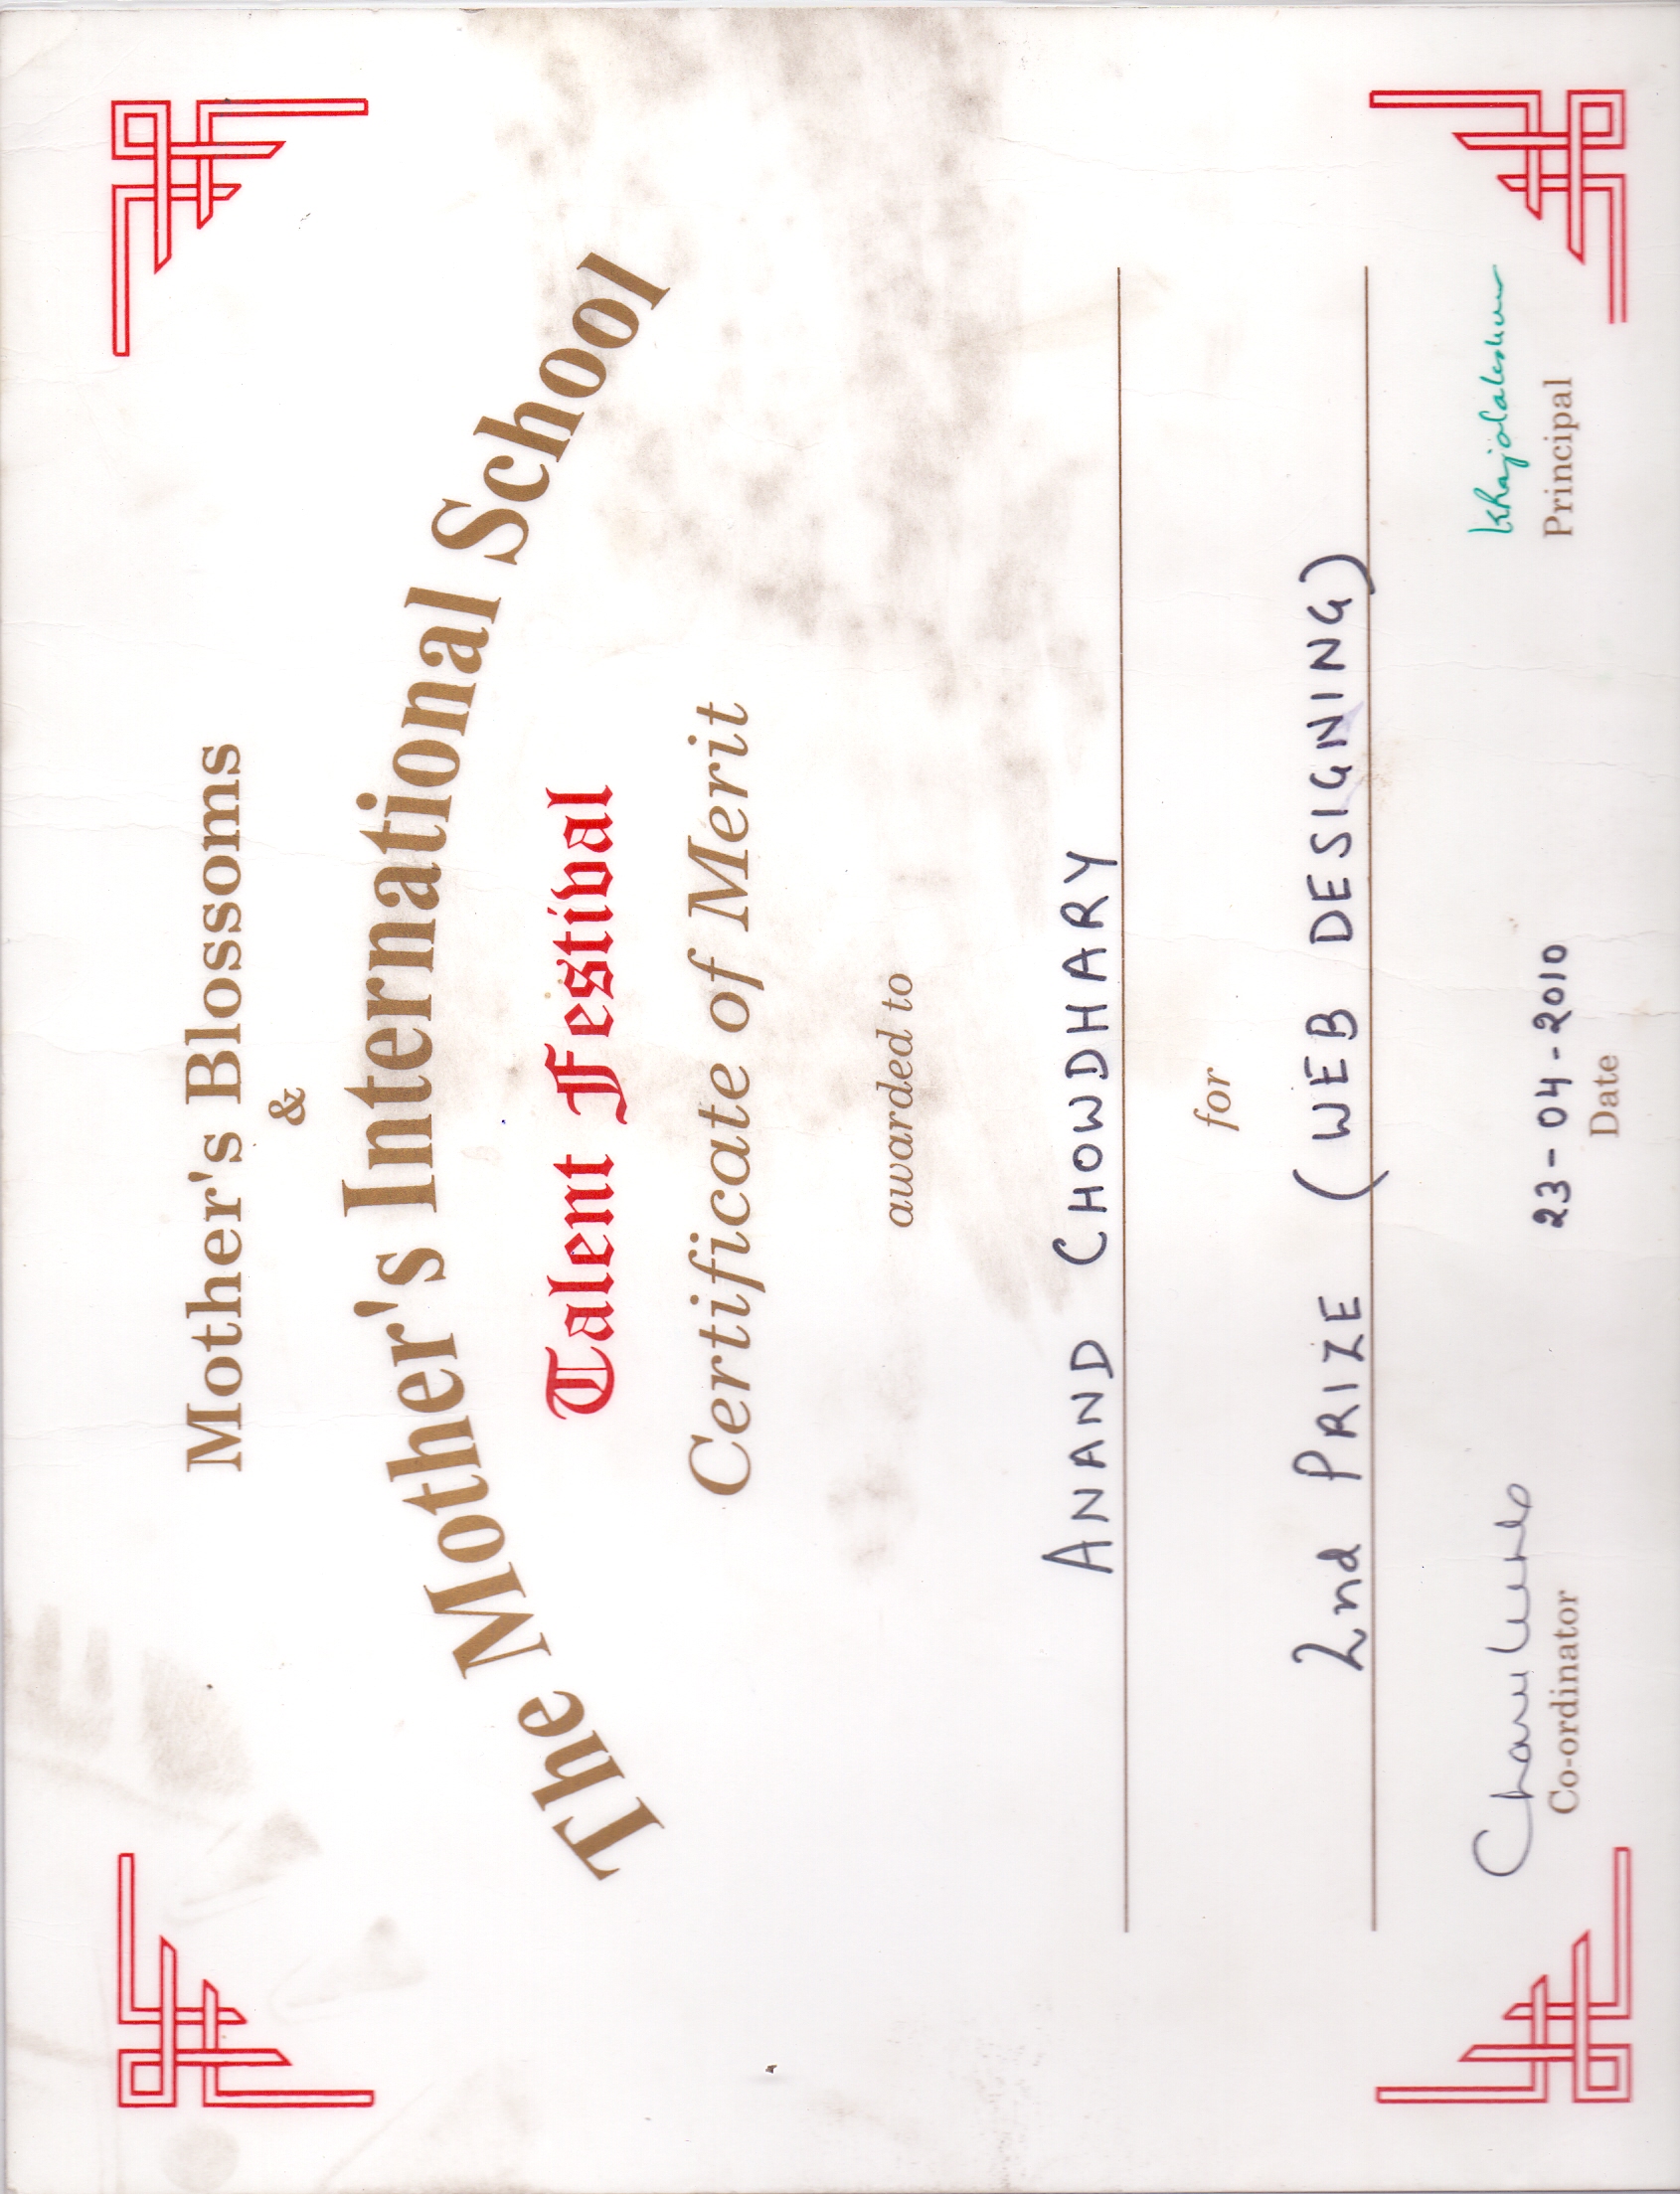 Mother's Blossoms
&
The Mother's International School
Talent Festival
Certificate of Merit
awarded to
ANAND CHOWDHARY
for
2nd PRIZE (WEB DESIGNING)
Co-ordinator
23-04-2010
Date
Principal